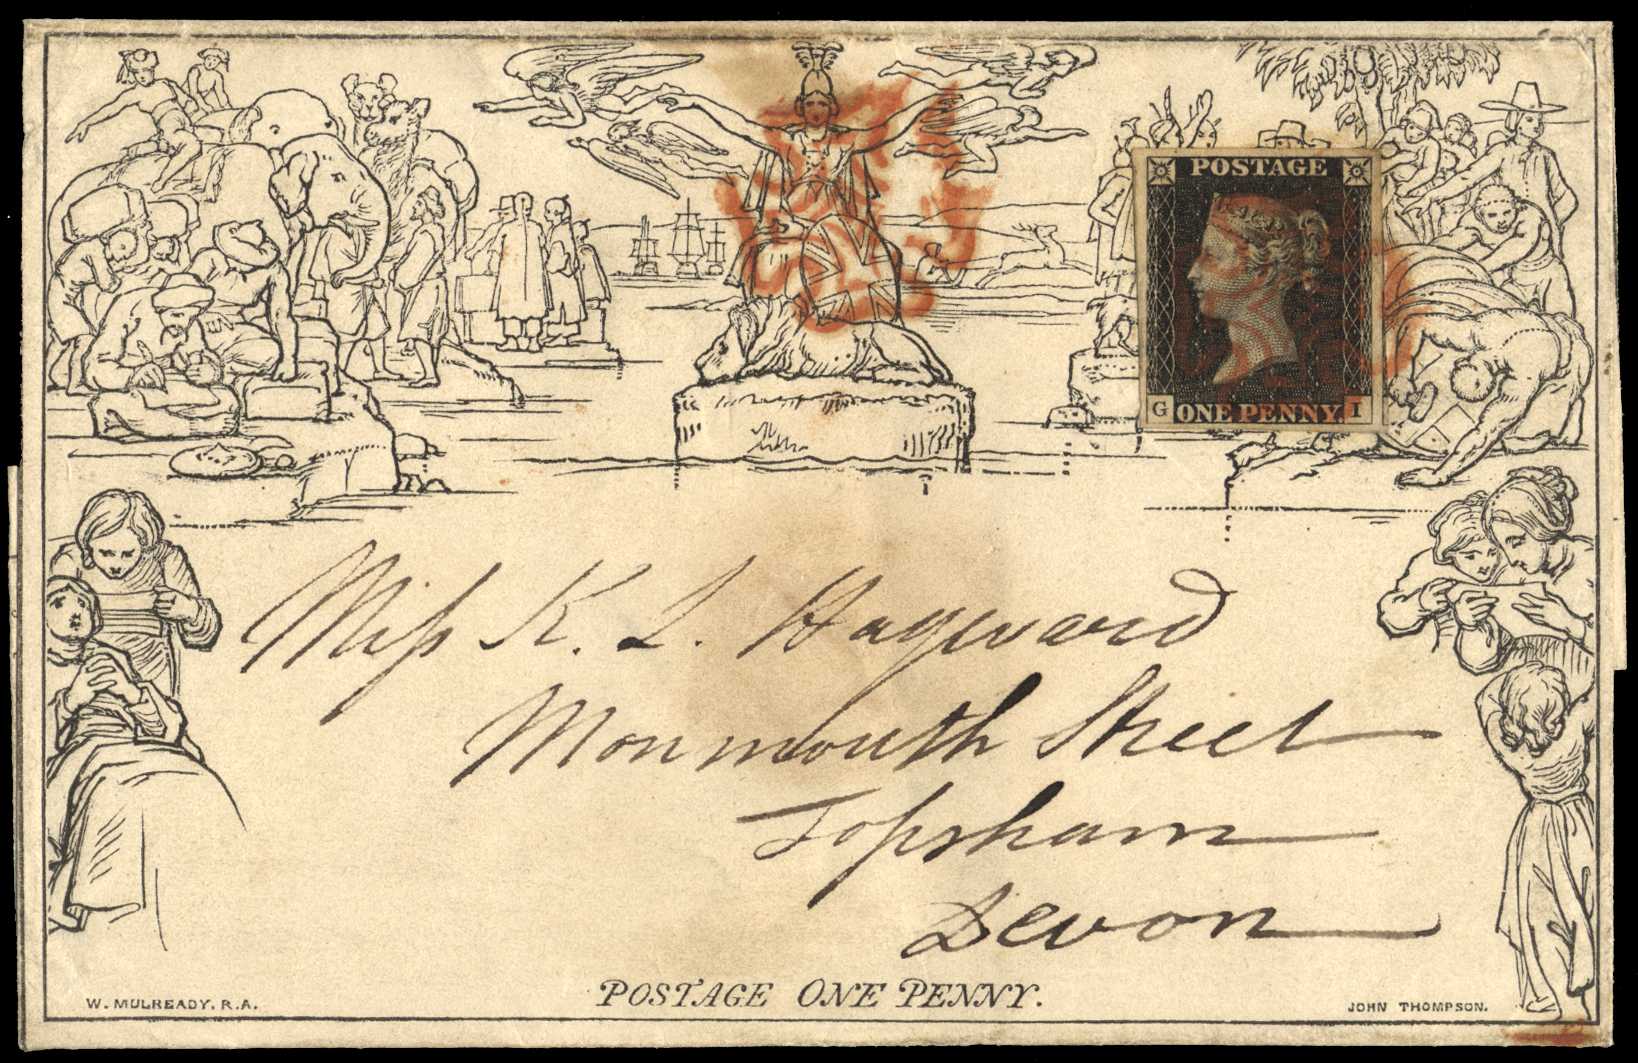 POSTAGE
G ONE PENNY. I
Miss K. L. Hayward
Monmouth Street
Topsham
Devon
POSTAGE ONE PENNY.
W. MULREADY. R.A.
JOHN THOMPSON.